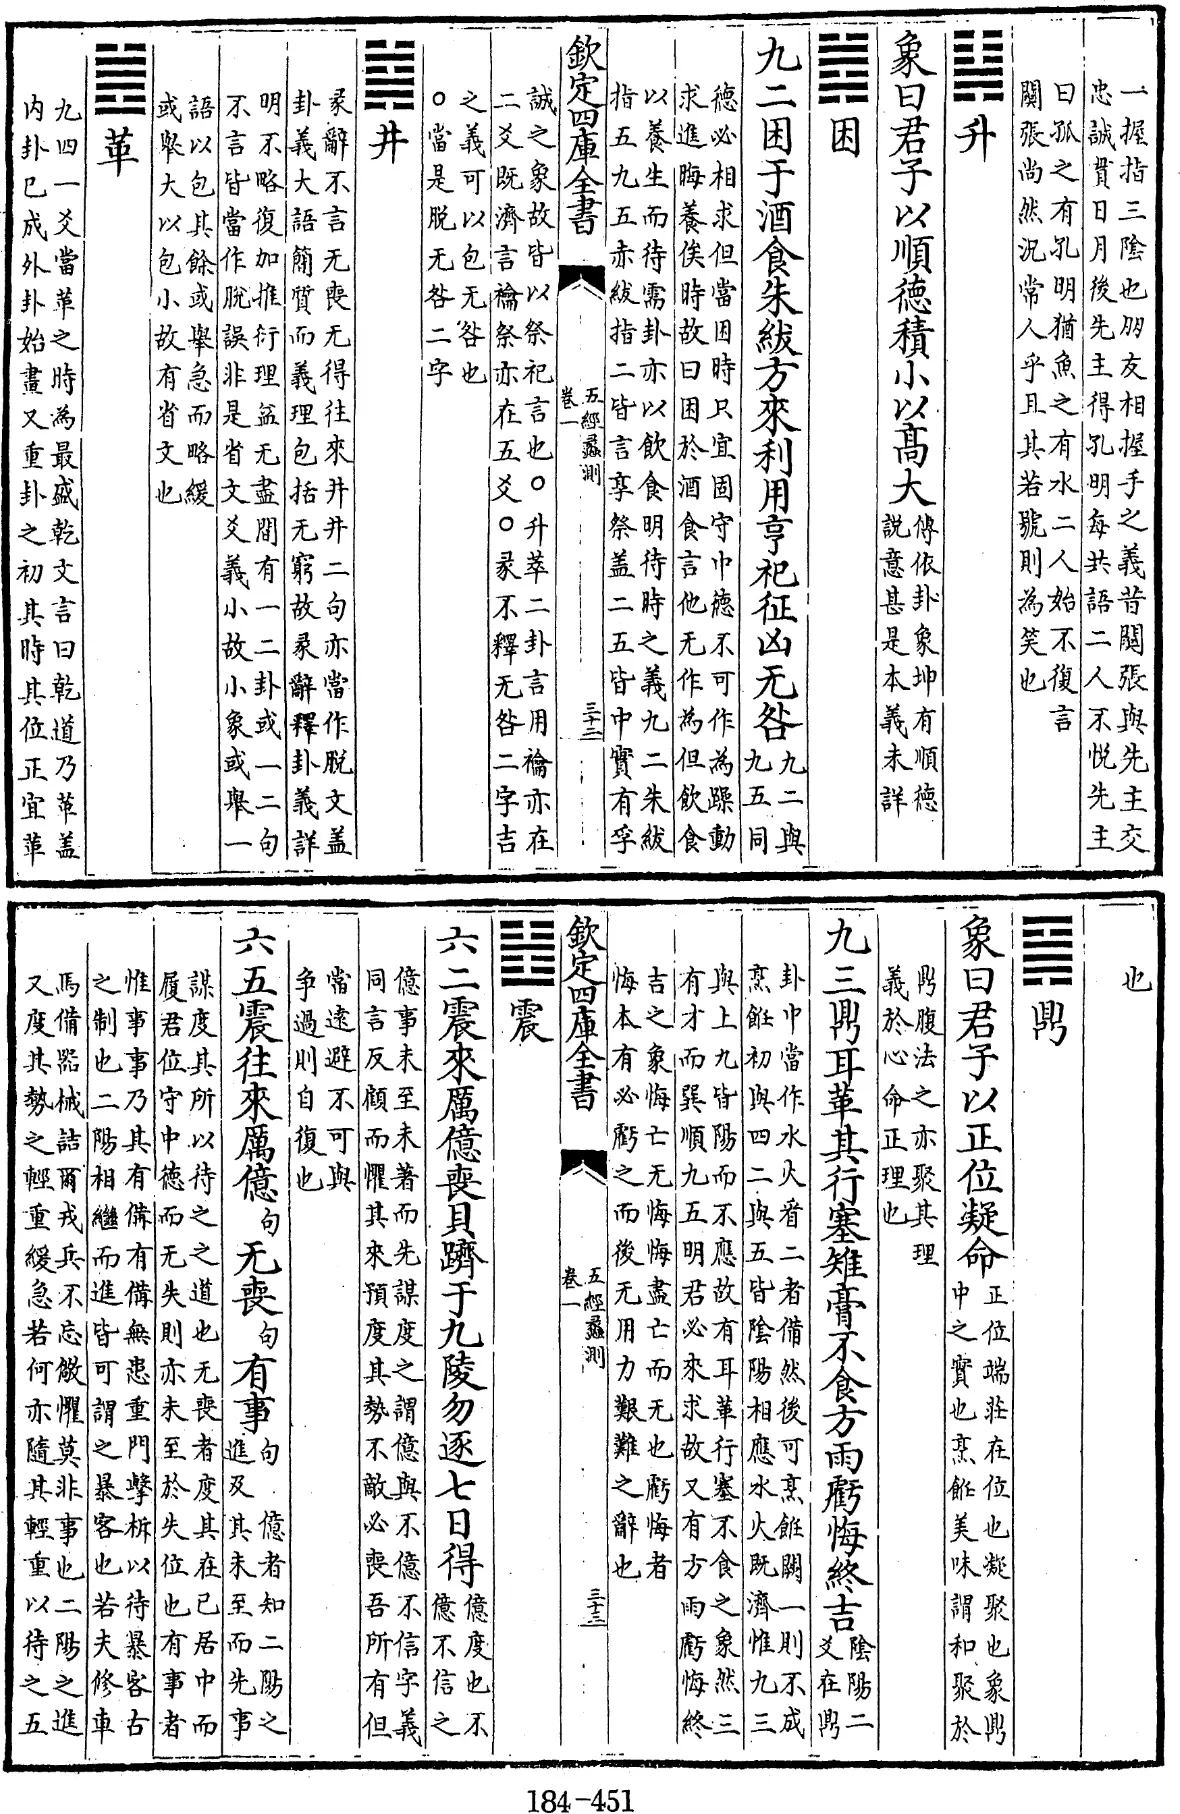 一握指三陰也朋友相握手之義昔關張與先主交
忠誠貫日月後先主得孔明每共語二人不悦先主
曰孤之有孔明猶魚之有水二人始不復言
關張尚然況常人乎且其若號則為笑也
升
象曰君子以順德積小以髙大
傳依卦象坤有順德
說意甚是本義未詳
困
九二困于酒食朱紱方來利用亨祀征凶无咎
九二與
九五同
德必相求但當困時只宜固守中德不可作為躁動
求進晦養俟時故曰困於酒食言他无作為但飲食
以養生而待需卦亦以飲食明待時之義九二朱紱
指五九五赤紱指二皆言享祭盖二五皆中實有孚
欽定四庫全書
五經蠡測
卷一
三十三
誠之象故皆以祭祀言也○升萃二卦言用禴亦在
二爻既濟言禴祭亦在五爻○彖不釋无咎二字吉
之義可以包无咎也
○當是脱无咎二字
井
彖辭不言无喪无得往來井井二句亦當作脱文盖
卦義大語簡質而義理包括无窮故彖辭釋卦義詳
明不略復加推衍理益无盡間有一二卦或一二句
不言皆當作脱誤非是省文爻義小故小象或舉一
語以包其餘或舉急而略緩
或舉大以包小故有省文也
革
九四一爻當革之時為最盛乾文言曰乾道乃革盖
内卦已成外卦始畫又重卦之初其時其位正宜革
也
鼎
象曰君子以正位凝命
正位端莊在位也凝聚也象鼎
中之實也烹飪美味謂和聚於
鼎腹法之亦聚其理
義於心命正理也
九三鼎耳革其行塞雉膏不食方雨虧悔終吉
陰陽二
爻在鼎
卦中當作水火看二者備然後可烹飪闗一則不成
烹飪初與四二與五皆陰陽相應水火既濟惟九三
與上九皆陽而不應故有耳革行塞不食之象然三
有才而巽順九五明君必來求故又有方雨虧悔終
吉之象悔亡无悔悔盡亡而无也虧悔者
悔本有必虧之而後无用力艱難之辭也
欽定四庫全書
五經蠡測
卷一
三十三
震
六二震來厲億喪貝躋于九陵勿逐七日得
億度也不
億不信之
億事未至未著而先謀度之謂億與不億不信字義
同言反顧而懼其來預度其勢不敵必喪吾所有但
當遠避不可與
爭過則自復也
六五震往來厲億句无喪句有事句
億者知二陽之
進及其未至而先事
謀度其所以待之之道也无喪者度其在已居中而
履君位守中德而无失則亦未至於失位也有事者
惟事事乃其有備有備無患重門擊柝以待暴客古
之制也二陽相繼而進皆可謂之暴客也若夫修車
馬備器械詰爾戎兵不忘儆懼莫非事也二陽之進
又度其勢之輕重緩急若何亦隨其輕重以待之五
184-451